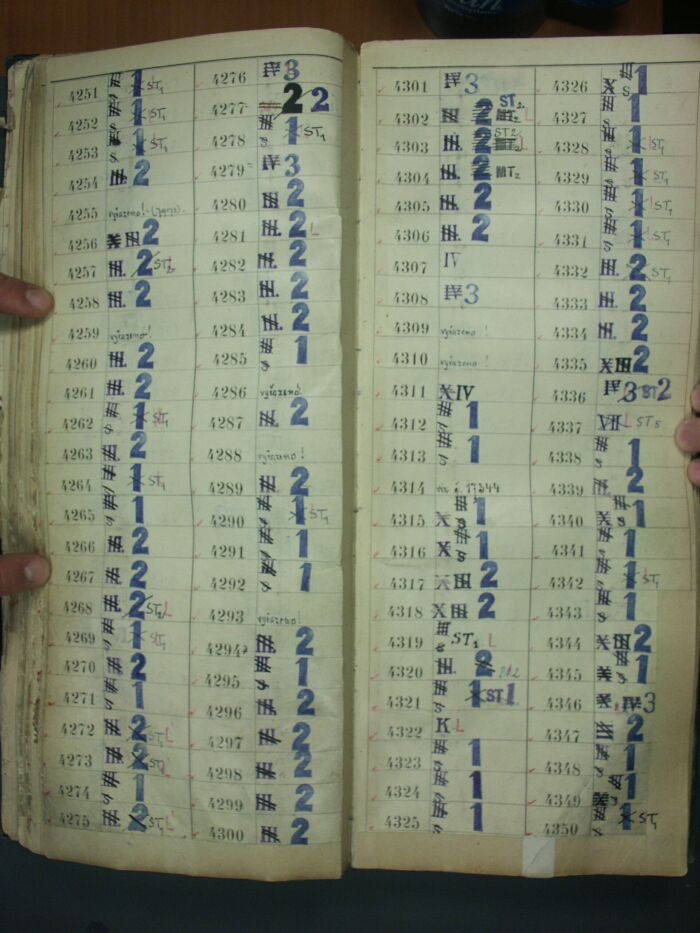 4251 1 ST1
4252 1 ST1
4253 1 ST1
4254 III. 2
4255 vyřazeno!
4256 X III 2
4257 III. 2 ST2
4258 III. 2
4259 vyřazeno!
4260 III. 2
4261 III. 2
4262 S 1 ST1
4263 III. 2
4264 1 ST1
4265 S 1
4266 III. 2
4267 III. 2
4268 III. 2 ST2 L
4269 1 ST1
4270 III. 2
4271 S 1
4272 III. 2 ST1 L
4273 III. 2 ST2 L
4274 1
4275 III. 2 ST1 L
4276 IV 3
4277 2 2
4278 S 1 ST1
4279 IV 3
4280 III. 2
4281 III. 2 L
4282 III. 2
4283 III. 2
4284 III. 2
4285 S 1
4286 vyřazeno!
4287 III. 2
4288 vyřazeno!
4289 III. 2
4290 1 ST1
4291 1
4292 S 1
4293 vyřazeno!
4294 III. 2
4295 S 1
4296 III. 2
4297 III. 2
4298 III. 2
4299 III. 2
4300 III. 2
4301 IV 3
4302 III. 2 ST2 L
4303 III. 2 ST2 L
4304 III. 2 MT2
4305 III. 2
4306 III. 2
4307 IV
4308 IV 3
4309 vyřazeno!
4310 vyřazeno!
4311 XIV
4312 S 1
4313 S 1
4314 viz č. 17244
4315 X S 1
4316 X S 1
4317 X III 2
4318 X III 2
4319 S ST1 L
4320 III. 2
4321 S 1 ST1
4322 K L
4323 S 1
4324 S 1
4325 S 1
4326 X S 1
4327 S 1
4328 S 1 ST1
4329 S 1 ST1
4330 S 1 ST1
4331 S 1 ST1
4332 III. 2 ST1
4333 III. 2
4334 III. 2
4335 X III 2
4336 IV 3 ST2
4337 VII L ST5
4338 S 1
4339 III. 2
4340 X S 1
4341 S 1
4342 S 1 ST1
4343 S 1
4344 X III 2
4345 X S 1
4346 X IV 3
4347 III 2
4348 S 1
4349 X S 1
4350 S 1 ST1